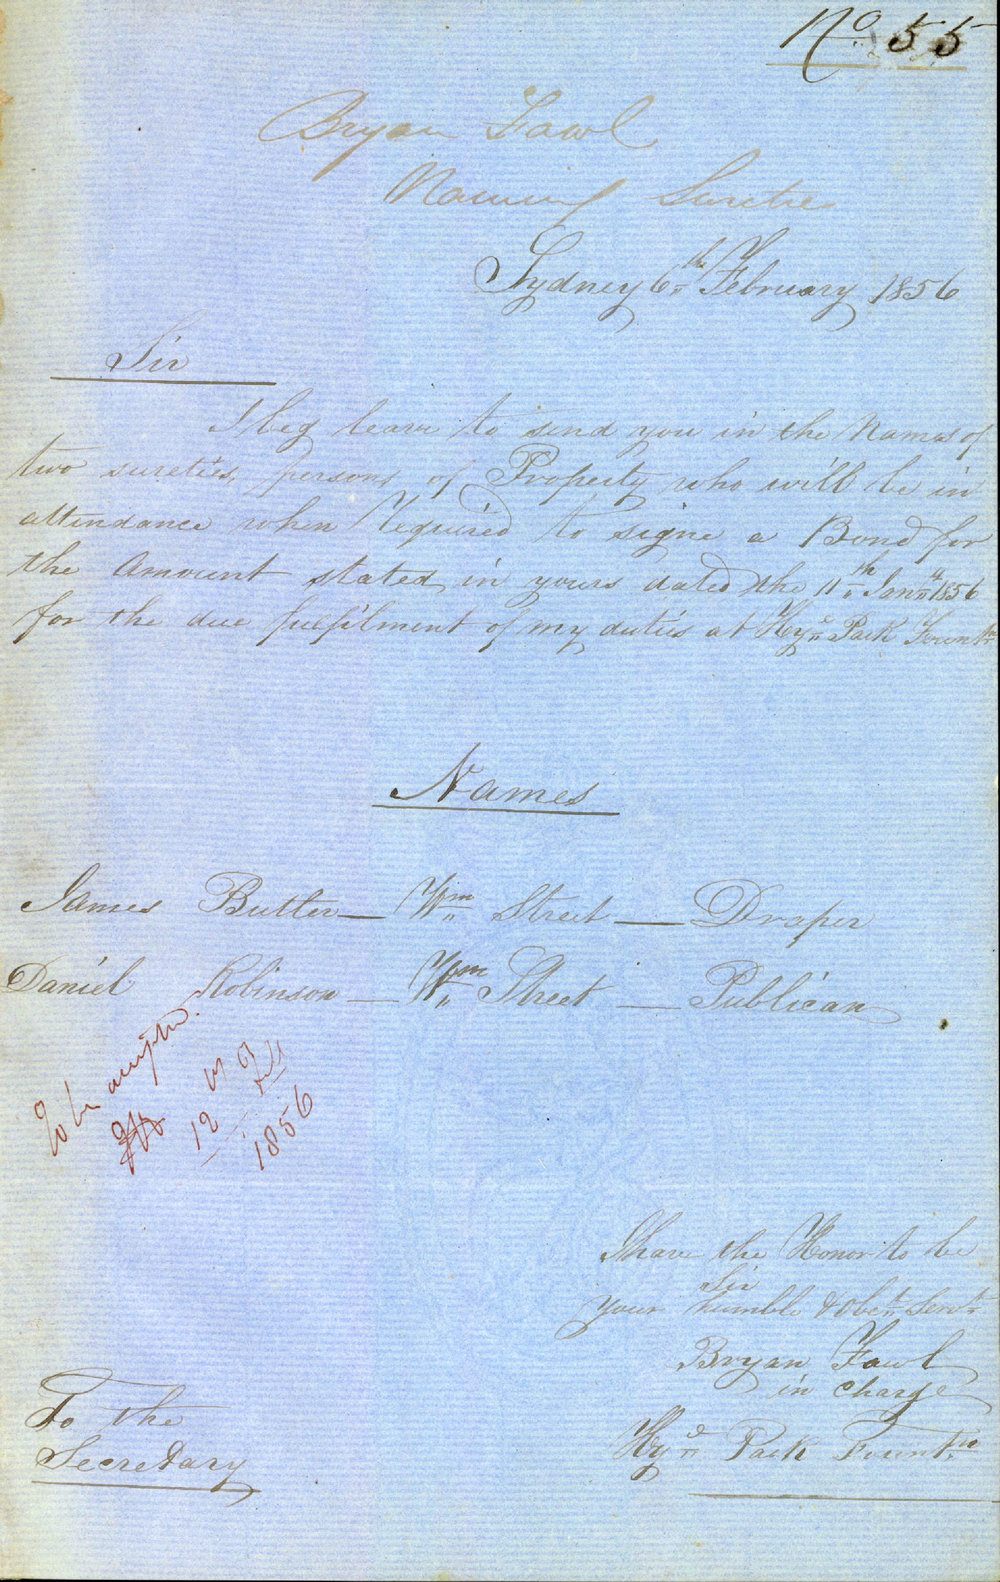 No 55
Bryan Fawl
Naming Sureties
Sydney 6th February 1856
Sir
I beg leave to send you in the Names of
two sureties, persons of Property who will be in
attendance when Required to signe a Bond for
the Amount stated in yours dated the 11th Jany 1856
for the due fulfilment of my duties at Hyd Park Fountn
Names
James Butler — Wm Street — Draper
Daniel Robinson — Wm Street — Publican
To be accepted.
12
1856
I have the Honor to be
Sir
your humble & Obet Servt
Bryan Fawl
in charge
Hyd Park Fountn
To the
Secretary